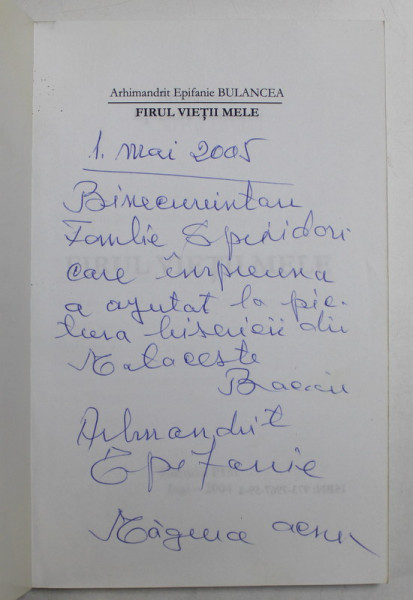 Arhimandrit Epifanie BULANCEA
FIRUL VIEȚII MELE
1. mai 2005
Binecuvintau
Familie Spiridon
care înpreuna
a ajutat la pic-
tura bisericii din
Bacau
Arhmandrit
Epifanie